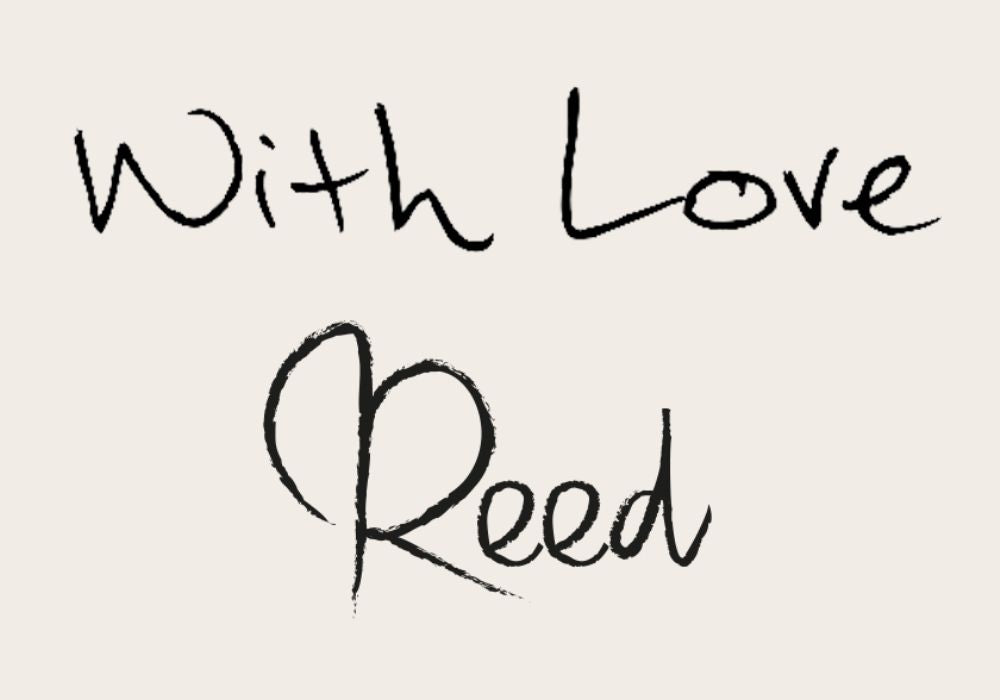 With Love
Reed